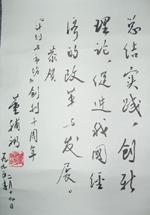 总结实践,创新
理论,促进我国经
济的改革与发展。
恭贺
创刊十周年
董辅礽